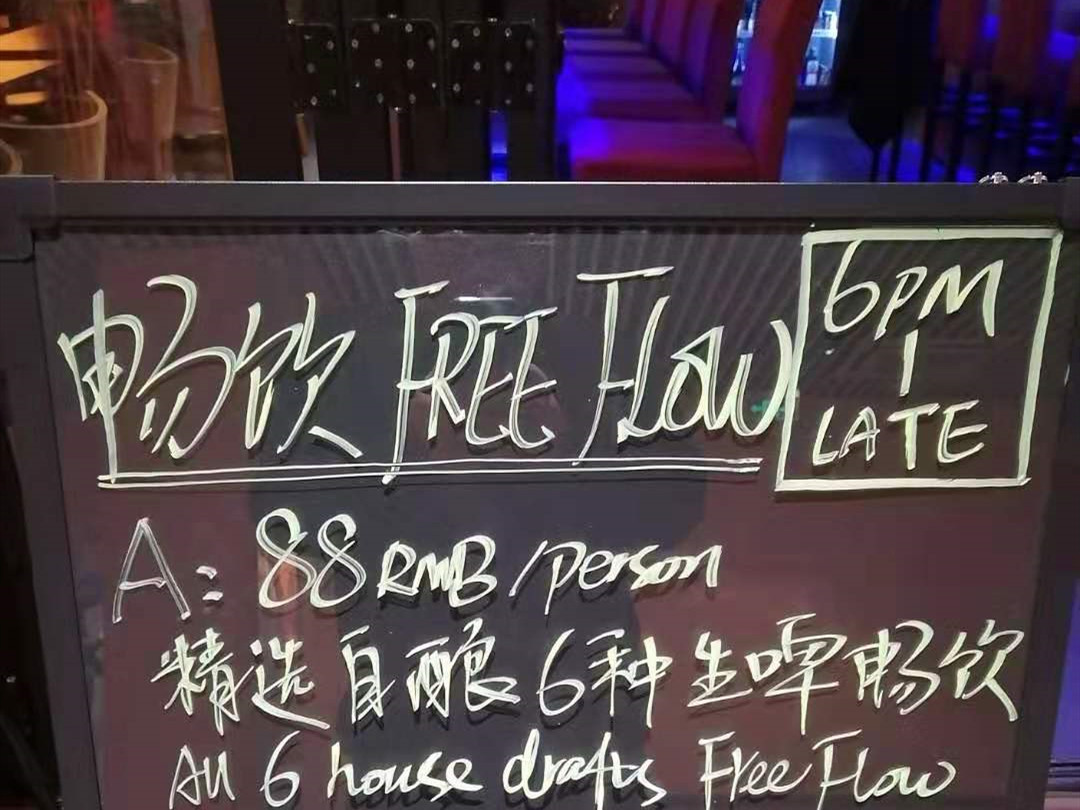 畅饮 FREE FLOW
6PM
|
LATE
A: 88 RMB/person
精选自酿6种生啤畅饮
All 6 house drafts Free Flow